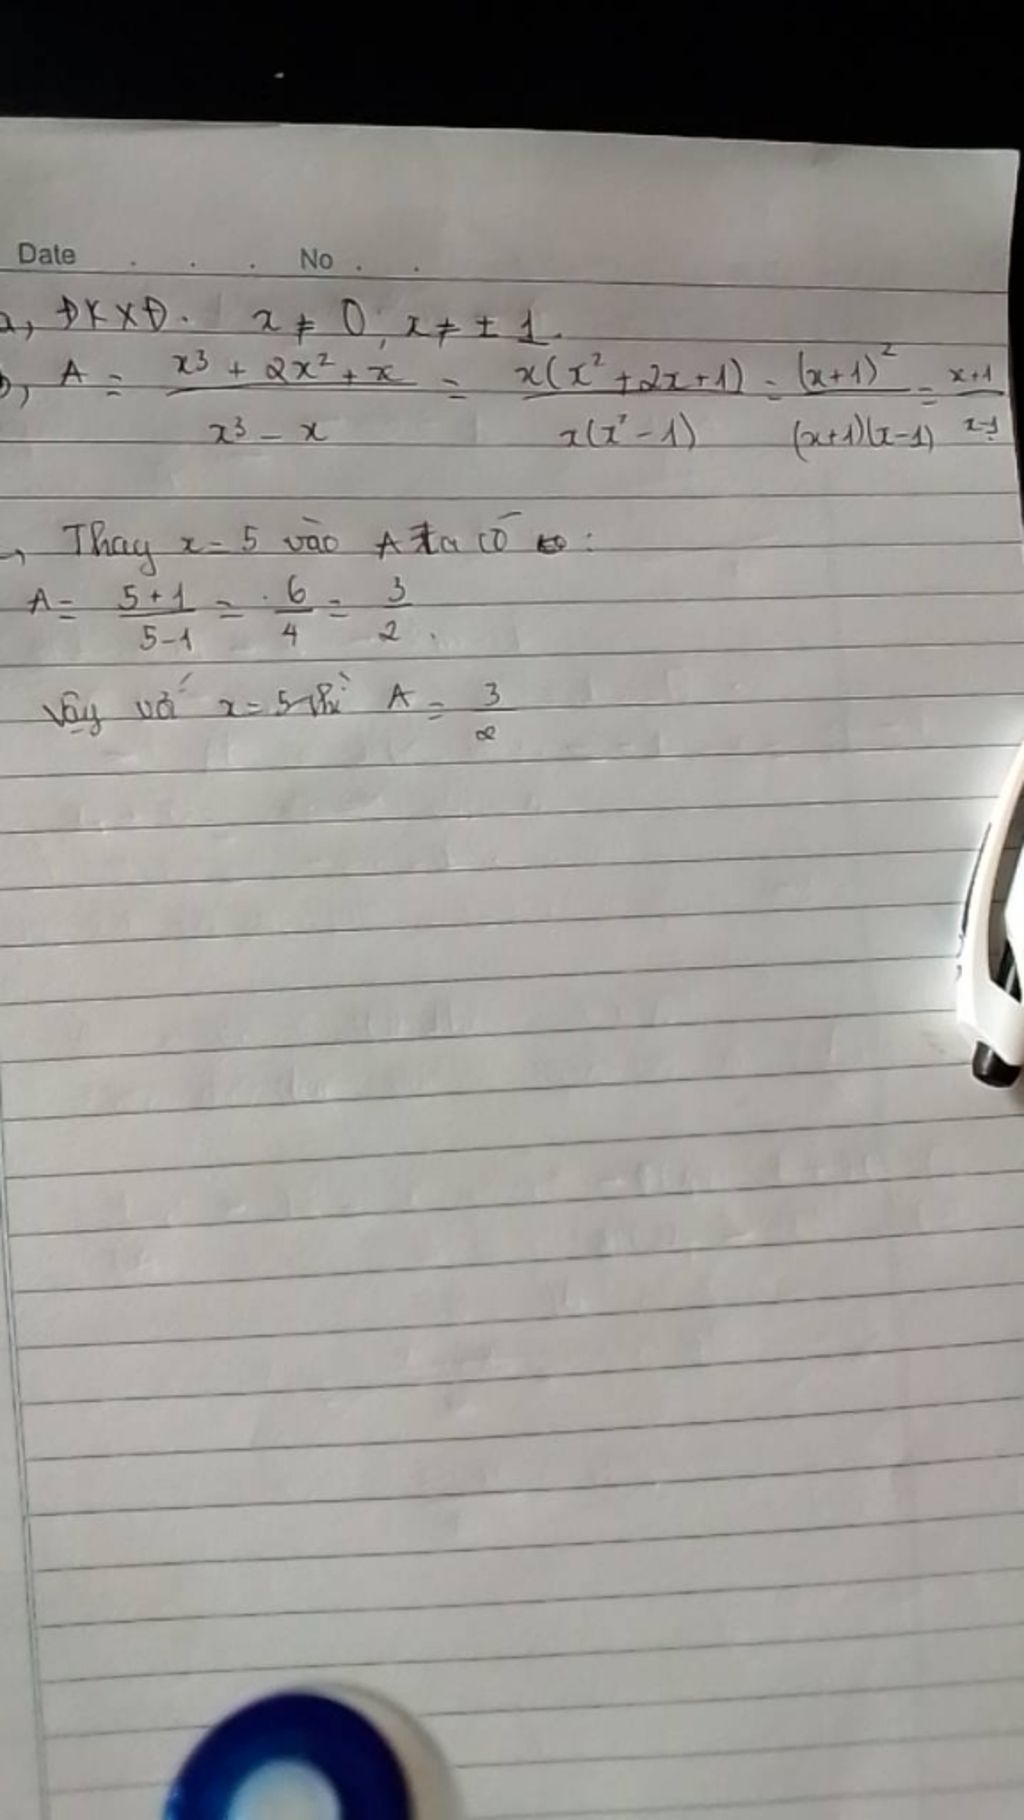 Date . . . No . .
a, ĐKXĐ. x ≠ 0, x ≠ ± 1.
b, A = x³ + 2x² + x / x³ - x = x(x² + 2x + 1) / x(x² - 1) = (x+1)² / (x+1)(x-1) = x+1 / x-1
, Thay x = 5 vào A ta có :
A = 5+1 / 5-1 = 6 / 4 = 3 / 2.
Vậy với x = 5 thì A = 3 / 2